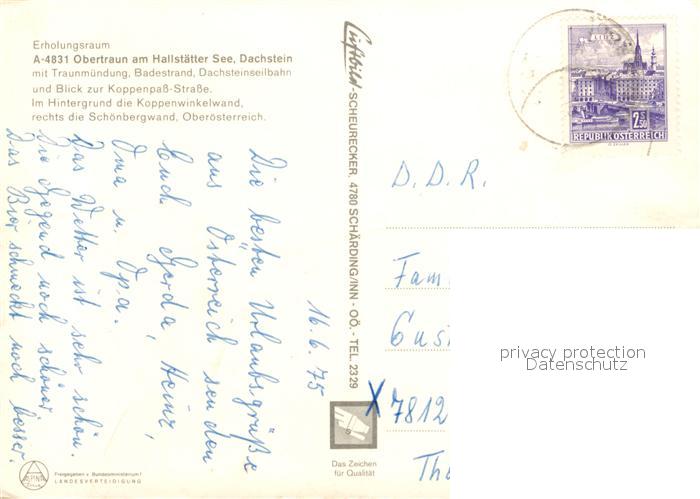 Erholungsraum
A-4831 Obertraun am Hallstätter See, Dachstein
mit Traunmündung, Badestrand, Dachsteinseilbahn
und Blick zur Koppenpaß-Straße.
Im Hintergrund die Koppenwinkelwand,
rechts die Schönbergwand, Oberösterreich.
16.6.75
Die besten Urlaubsgrüße
aus Österreich senden
Euch Gerda, Heinz,
Oma u. Opa.
Das Wetter ist sehr schön.
Die Gegend noch schöner
Das Bier schmeckt noch besser.
Luftbild-SCHEURECKER, 4780 SCHÄRDING/INN - OÖ. - TEL. 2329
LINZ
2.50
REPUBLIK ÖSTERREICH
D.D.R.
Fam
Gus
X 7812
Th
privacy protection
Datenschutz
Das Zeichen
für Qualität
ALPINA
Freigegeben v. Bundesministerium f.
LANDESVERTEIDIGUNG